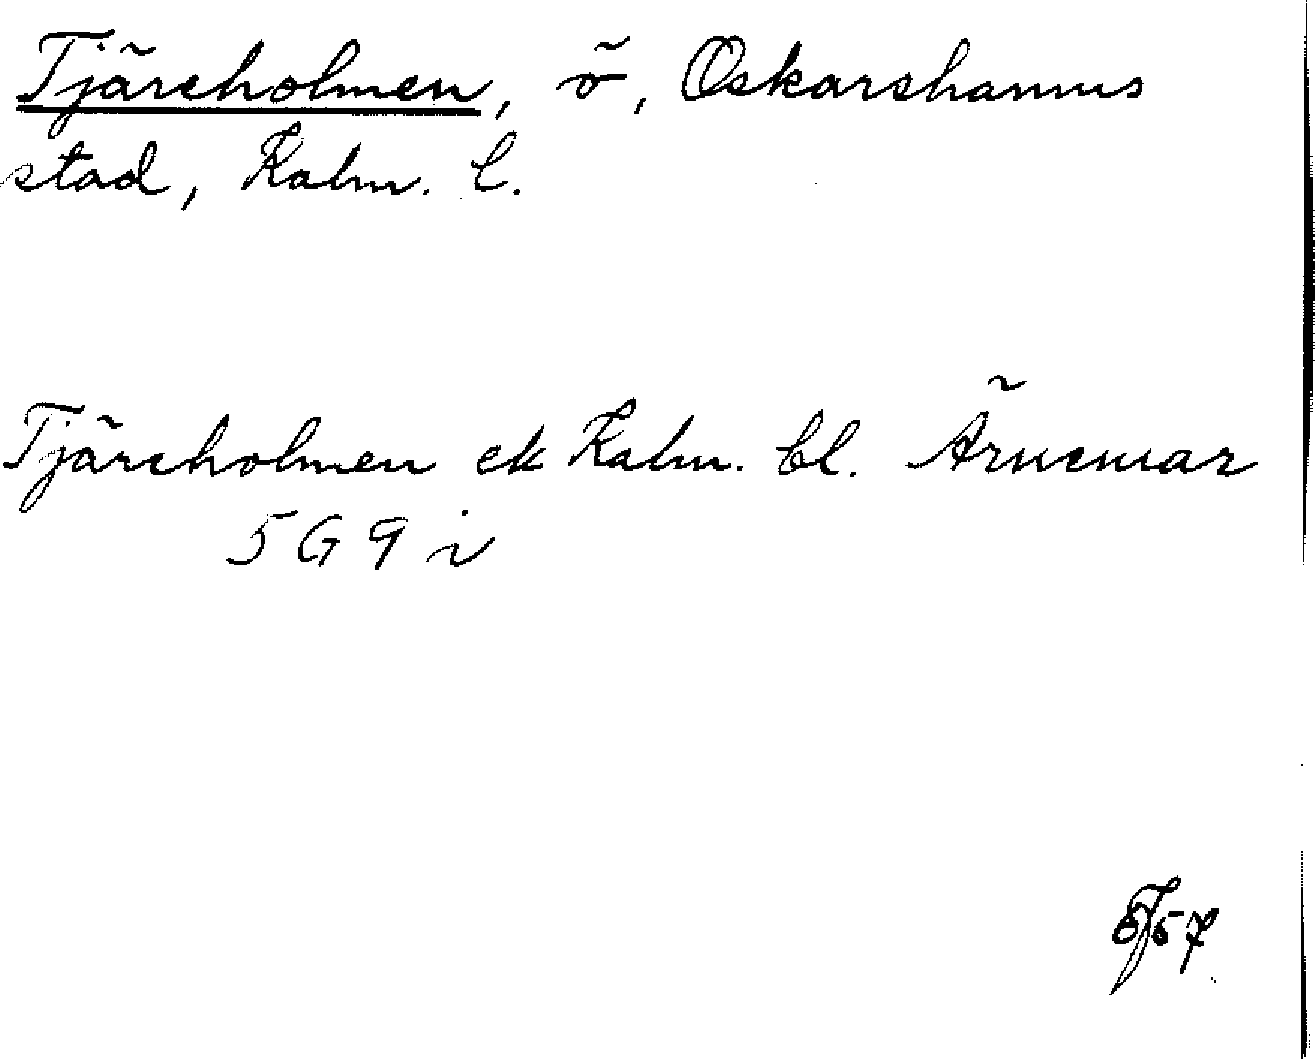 Tjäreholmen, ö, Oskarshamns
stad, Kalm. l.
Tjäreholmen ek Kalm. bl. Ärnemar
5G9i